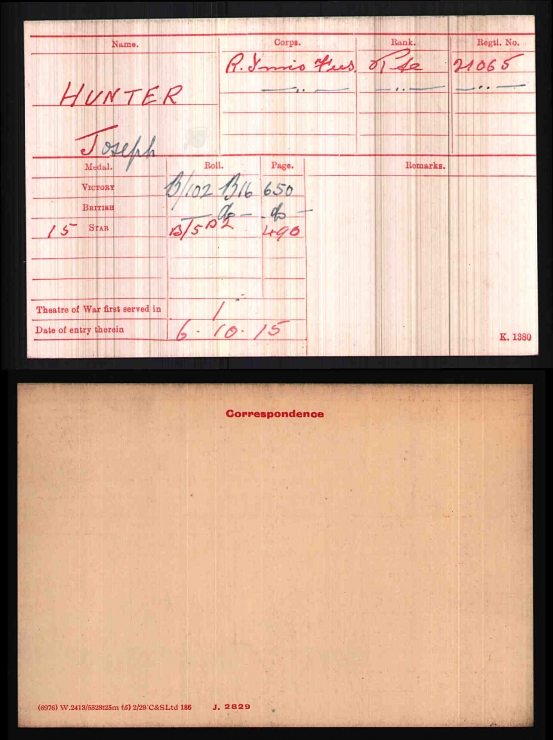 Name. Corps. Rank. Regtl. No.
HUNTER R. Innis Fus. Pte 21065
—„— —„— —„—
Joseph
Medal. Roll. Page. Remarks.
VICTORY B/102 B16 650
BRITISH — do — do —
15 STAR B/5 B2 490
Theatre of War first served in 1
Date of entry therein 6. 10. 15
K. 1380
Correspondence
(6976) W.2413/5528125m (5) 2/29 C&SLtd 186 J. 2829